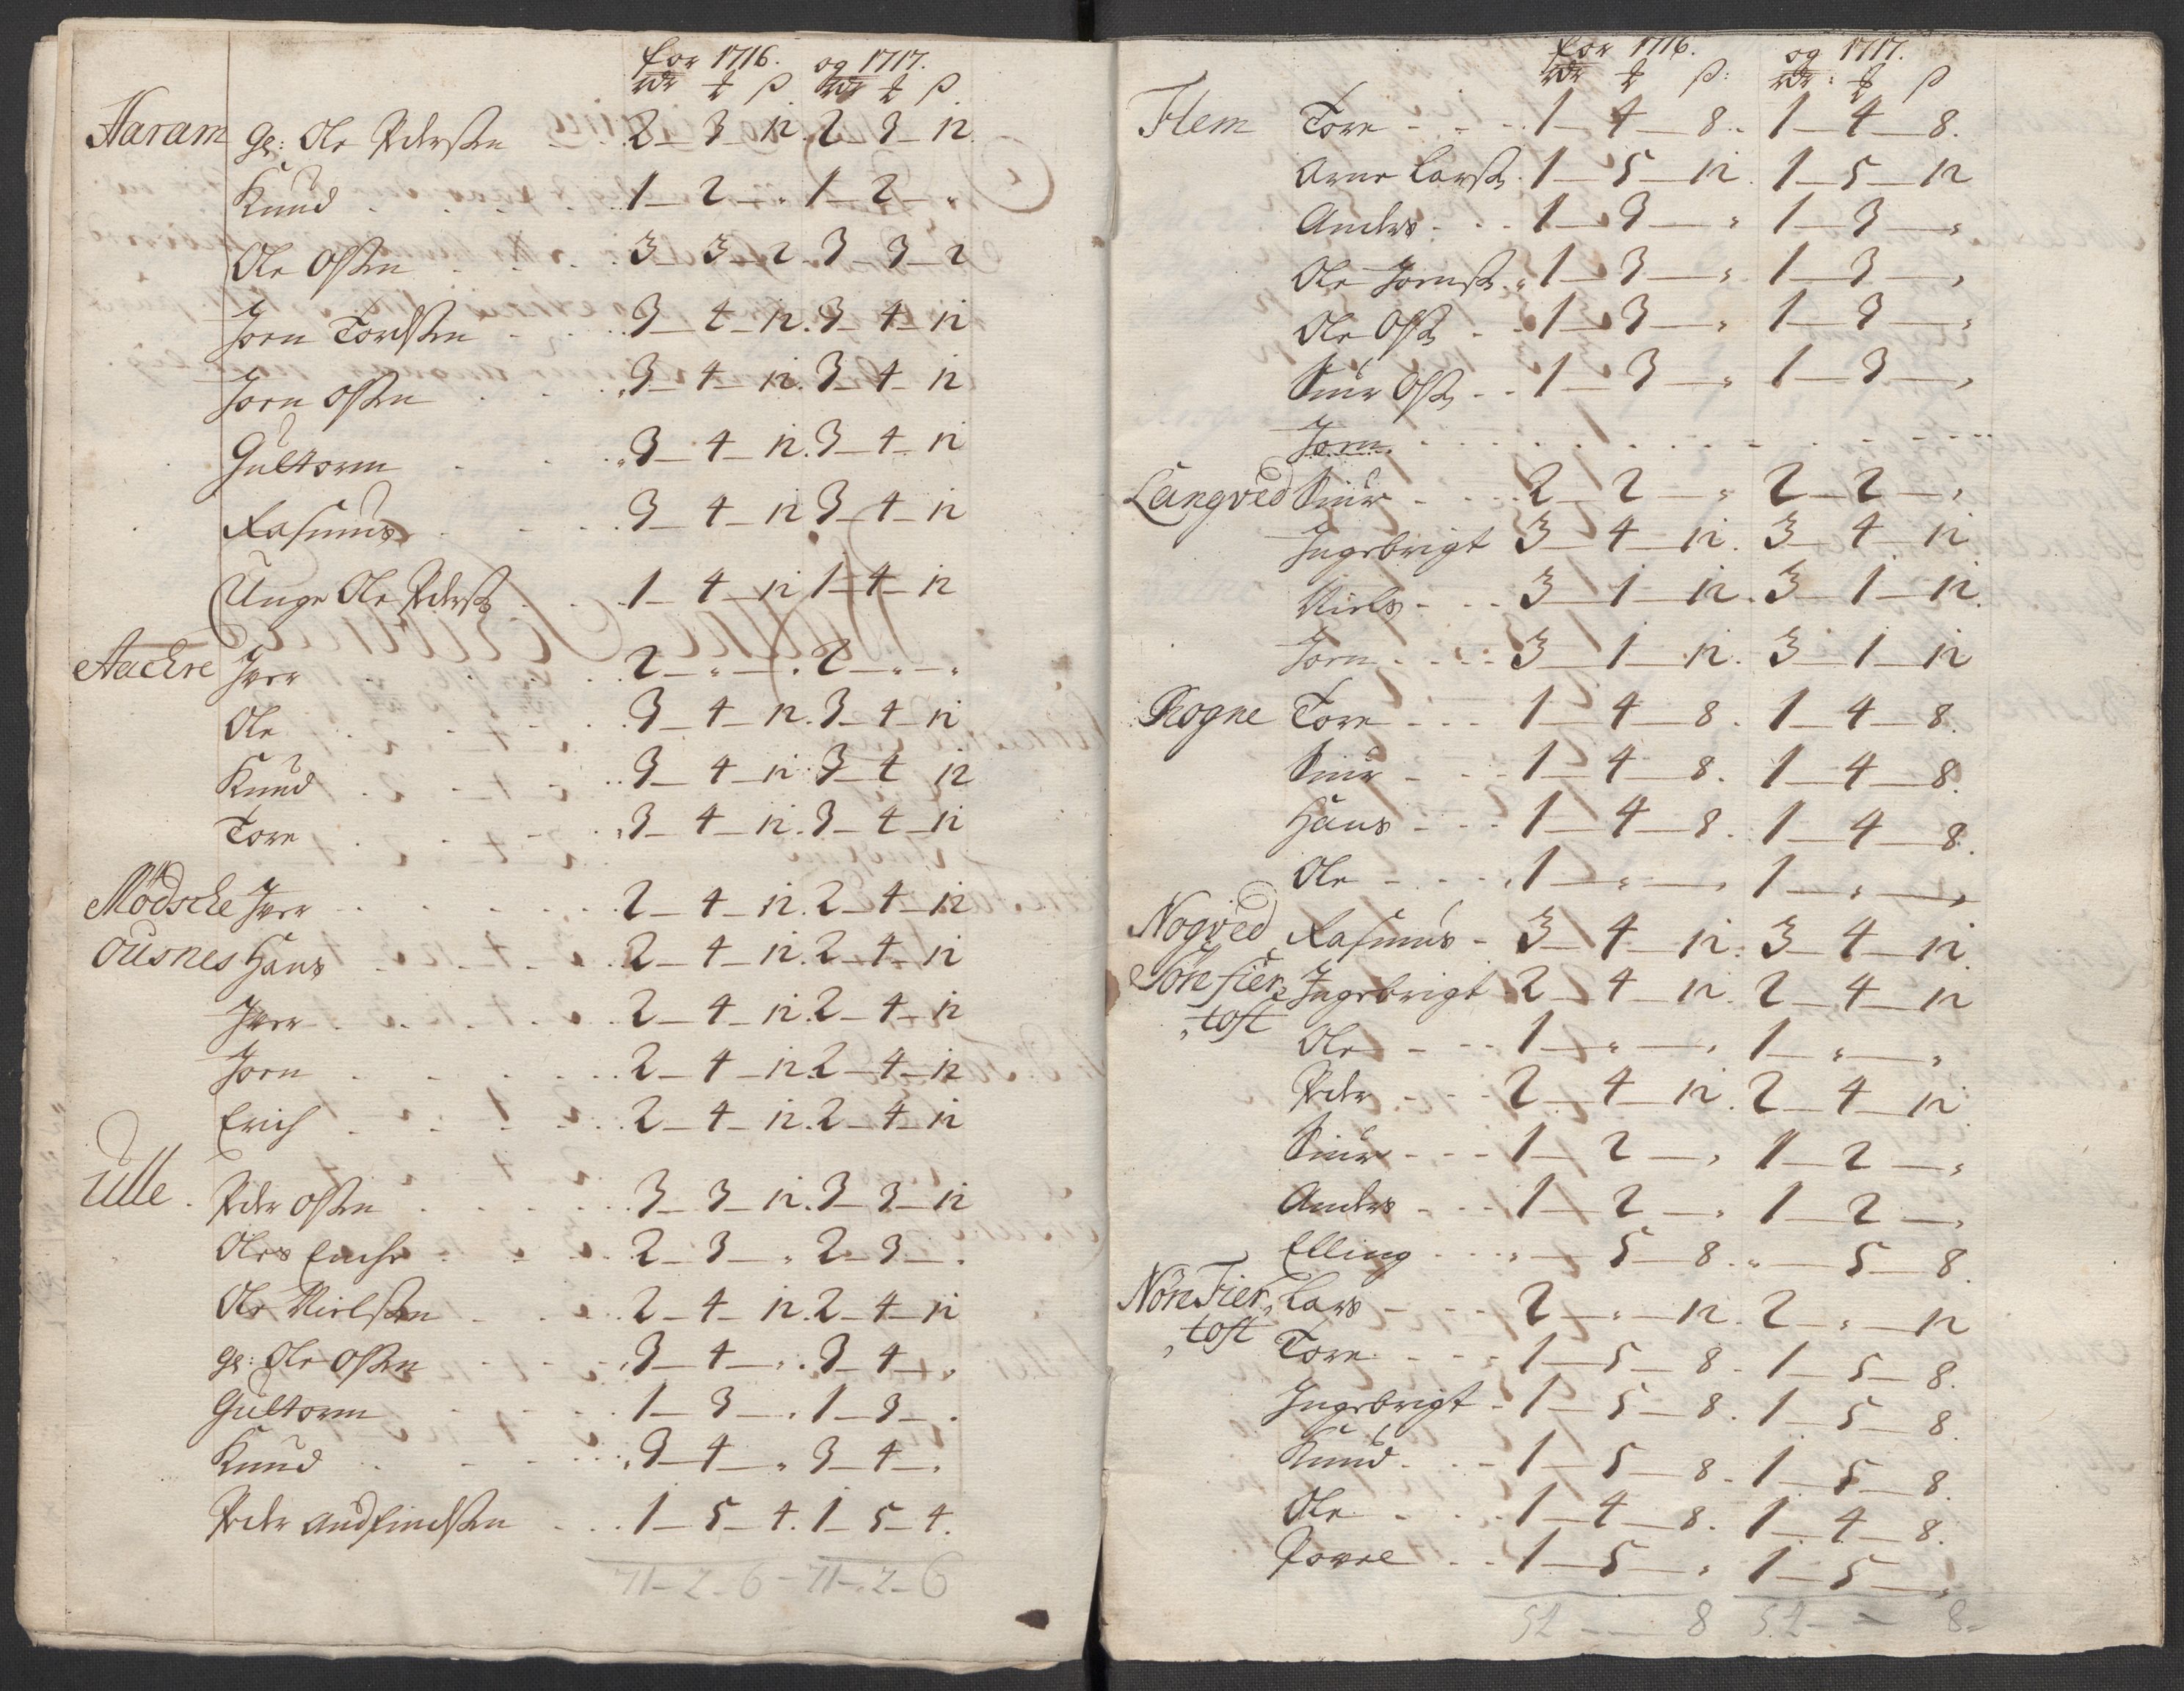 for 1716. og 1717.
rdr ₰ ß rdr ₰ ß
Haram Gl: Ole Pedersen 2 - 3 - 12. 2 - 3 - 12.
Knud 1 - 2 - " 1 - 2 - "
Ole Olsen 3 - 3 - 2. 3 - 3 - 2
Joen Tordsen 3 - 4 - 12. 3 - 4 - 12
Joen Olsen 3 - 4 - 12. 3 - 4 - 12
Gultorm 3 - 4 - 12. 3 - 4 - 12
Rasmus 3 - 4 - 12 3 - 4 - 12
Unge Ole Peders: 1 - 4 - 12 1 - 4 - 12
Aackre Iver 2 - " - " 2 - " - "
Ole 3 - 4 - 12. 3 - 4 - 12
Knud 3 - 4 - 12. 3 - 4 12
Tore 3 - 4 - 12. 3 - 4 - 12
Mødsche Iver 2 - 4 - 12. 2 - 4 - 12
Ousnes Hans 2 - 4 - 12. 2 - 4 - 12
Iver 2 - 4 - 12. 2 - 4 - 12
Joen 2 - 4 - 12. 2 - 4 - 12
Erich 2 - 4 - 12. 2 - 4 - 12
Ulle. Peder Olsen 3 - 3 - 12. 3 - 3 - 12
Oles Enche 2 - 3 - " 2 - 3 - "
Ole Nielsen 2 - 4 - 12. 2 - 4 - 12
gl: Ole Olsen 3 - 4 - " 3 - 4 - "
Gultorm 1 - 3 - " 1 - 3 - "
Knud 3 - 4 - " 3 - 4 - "
Peder Audfindsen 1 - 5 - 4. 1 - 5 - 4.
71 - 2 - 6 - 71 - 2 - 6
for 1716. og 1717.
rdr ₰ ß: rdr: ₰ ß
Flem Tore 1 - 4 - 8. 1 - 4 - 8.
Arne Lars: 1 - 5 - 12. 1 - 5 - 12
Anders 1 - 3 - " 1 - 3 - "
Ole Joens: 1 - 3 - " 1 - 3 - "
Ole Ols: 1 - 3 - " 1 - 3 - "
Siur Ols: 1 - 3 - " 1 - 3 - "
Joen.
Langved Siur 2 - 2 - " 2 - 2 - "
Ingebrigt 3 - 4 - 12. 3 - 4 - 12
Niels 3 - 1 - 12. 3 - 1 - 12.
Joen 3 - 1 - 12. 3 - 1 - 12
Rogne Tore 1 - 4 - 8. 1 - 4 - 8.
Siur 1 - 4 - 8. 1 - 4 - 8.
Hans 1 - 4 - 8. 1 - 4 - 8.
Ole 1 - " - " 1 - " - "
Nogved Rasmus 3 - 4 - 12. 3 - 4 - 12.
Søre fier, Ingebrigt 2 - 4 - 12. 2 - 4 - 12
,toft Ole 1 - " - " 1 - " - "
Peder 2 - 4 - 12. 2 - 4 - 12
Siur 1 - 2 - " 1 - 2 - "
Anders 1 - 2 - " 1 - 2 - "
Elling " - 5 - 8. " - 5 - 8.
Nore Fier, Lars 2 - " - 12. 2 - " - 12
,toft Tore 1 - 5 - 8. 1 - 5 - 8.
Ingebrigt 1 - 5 - 8. 1 - 5 - 8.
Knud 1 - 5 - 8. 1 - 5 - 8.
Ole 1 - 4 - 8. 1 - 4 - 8.
Povel 1 - 5 - " 1 - 5 - "
52 - - 8 52 - - 8